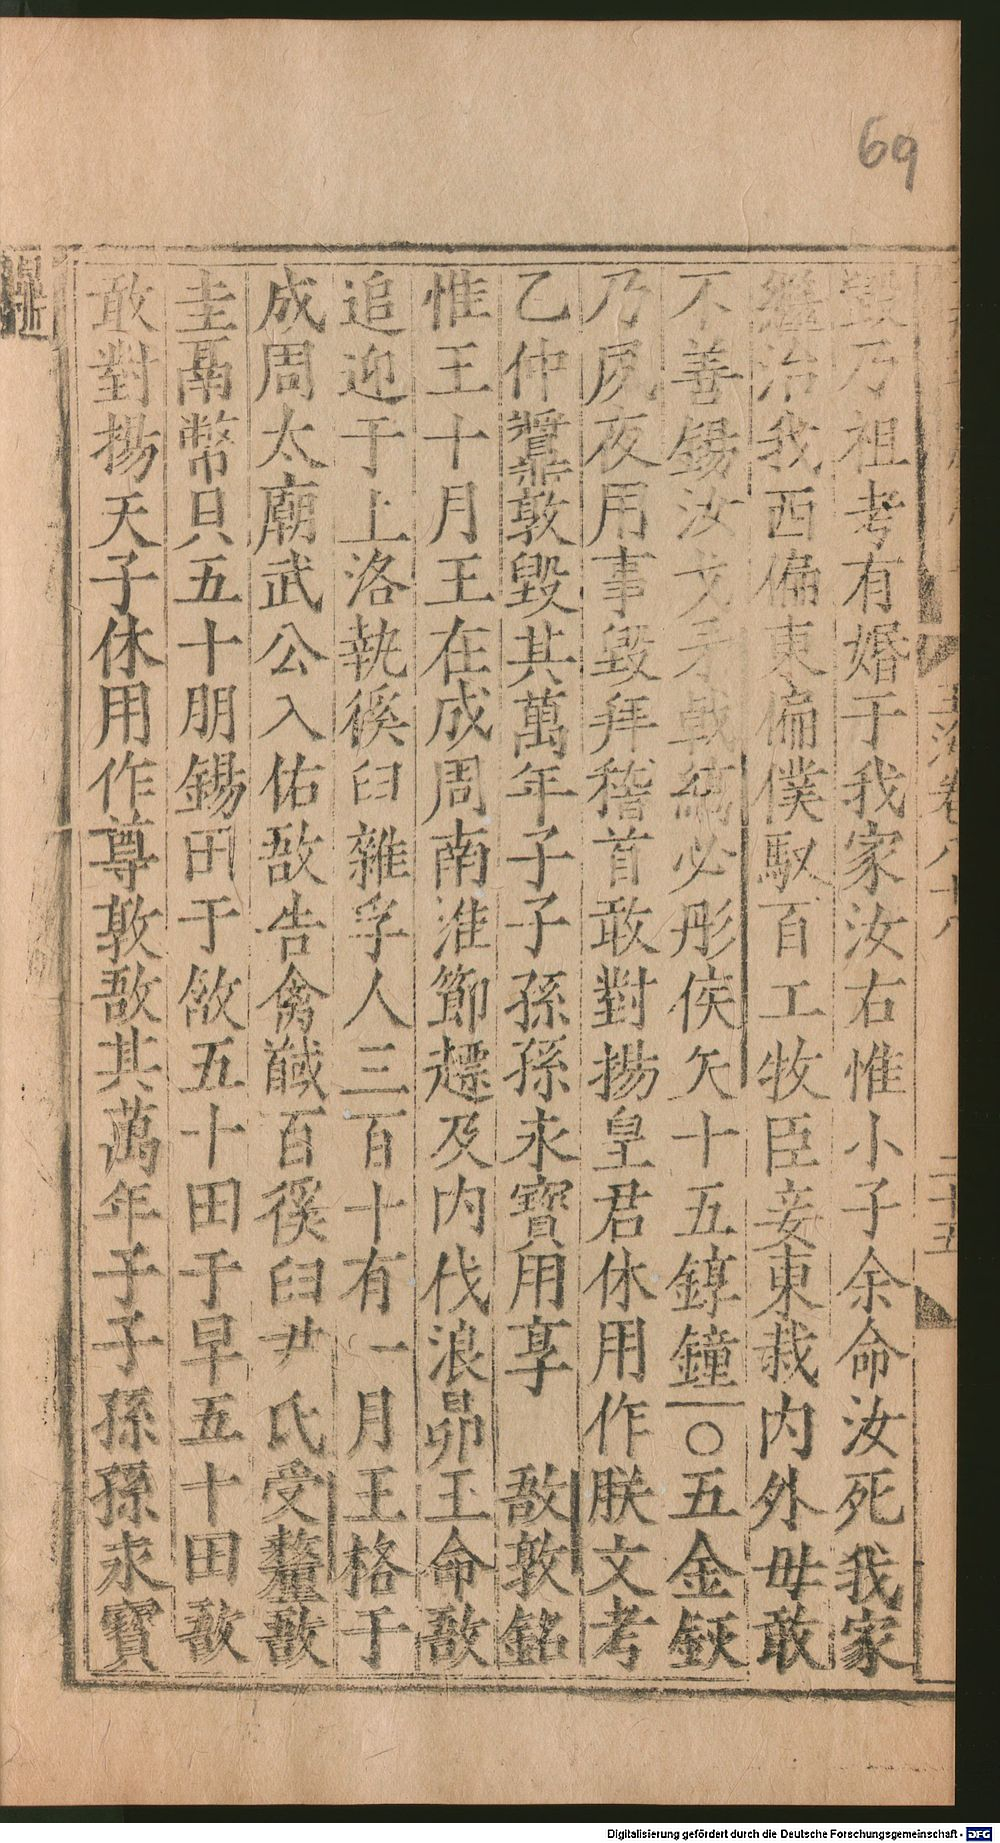 69
玉海卷八十八
二十五
毀乃祖考有婚于我家汝右惟小子余命汝死我家
繼治我西偏東偏僕馭百工牧臣妾東栽内外毋敢
不善錫汝戈矛戟縞必彤矦矢十五錞鐘一〇五金鋏
乃夙夜用事毀拜稽首敢對揚皇君休用作朕文考
乙仲敦毀其萬年子子孫孫永寶用享　敔敦銘
惟王十月王在成周南淮節趯及内伐浪昴王命敔
追迎于上洛執徯臼雜孚人三百十有一月王格于
成周太廟武公入佑敔告禽馘百徯臼尹氏受釐敔
圭鬲幣貝五十朋錫田于敜五十田于早五十田敔
敢對揚天子休用作尊敦敔其萬年子子孫孫永寶
Digitalisierung gefördert durch die Deutsche Forschungsgemeinschaft - DFG